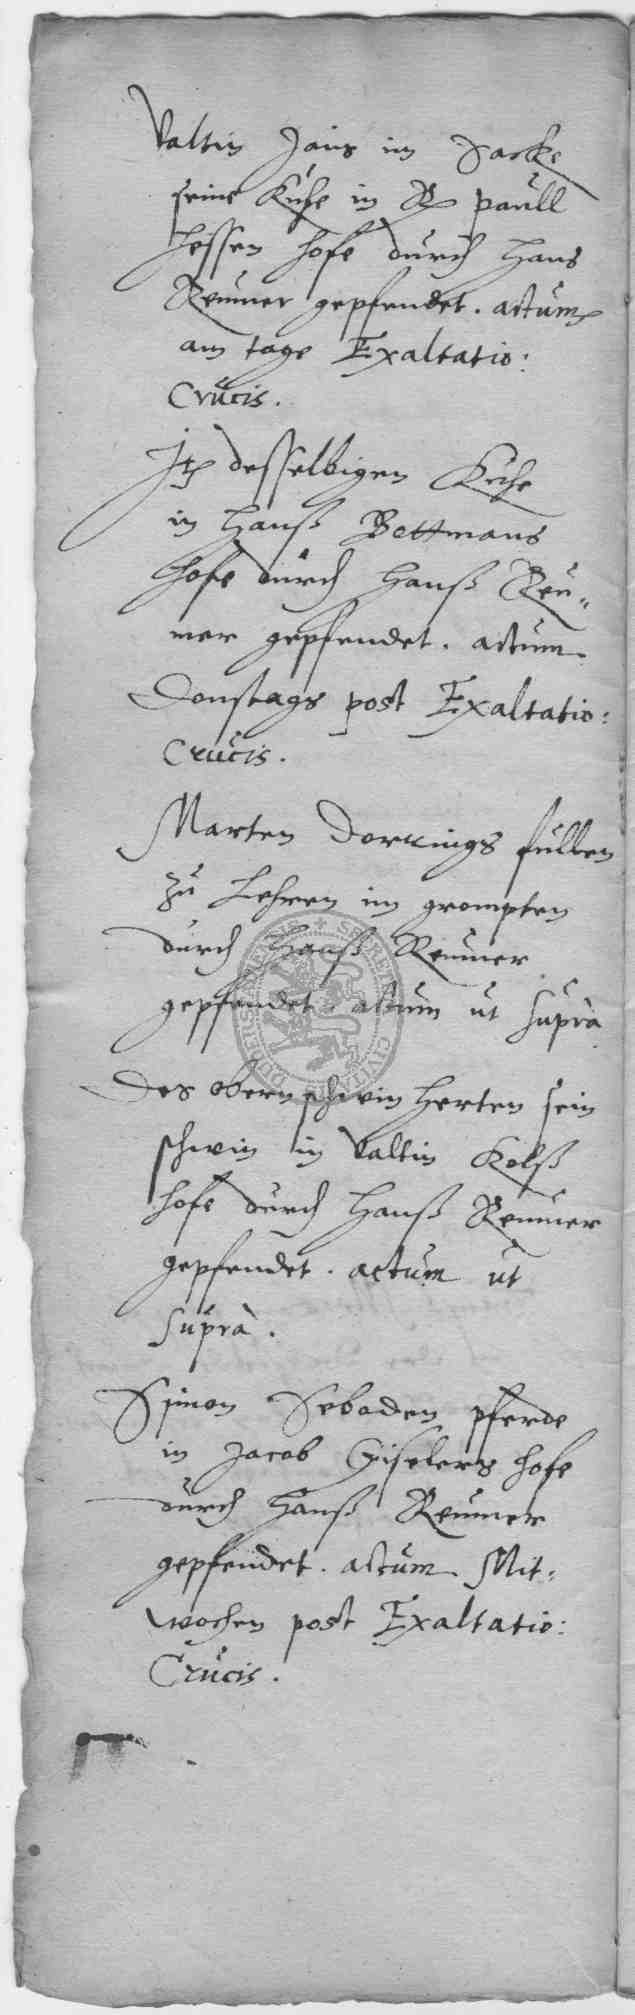 Valtin Jans im Sacke
seine Kuhe in R paull
Hessen hofe durch Hans
Reumer gepfendet. actum
am tage Exaltatio:
Crucis.
It desselbigen Kuhe
in Hanß Bettmans
hofe durch Hanß Reu-
mer gepfendet. actum
Donstags post Exaltatio:
Crucis.
Marten Dorrings fullen
zu Lehren im grompten
durch Hanß Reumer
gepfendet. actum ut supra
Des obern schwin herten sein
schwin in Valtin Kolß
hofe durch Hanß Reumer
gepfendet. actum ut
supra.
Simon Sebaden pferde
in Jacob Giselers hofe
durch Hanß Reumer
gepfendet. actum Mit-
wochen post Exaltatio:
Crucis.